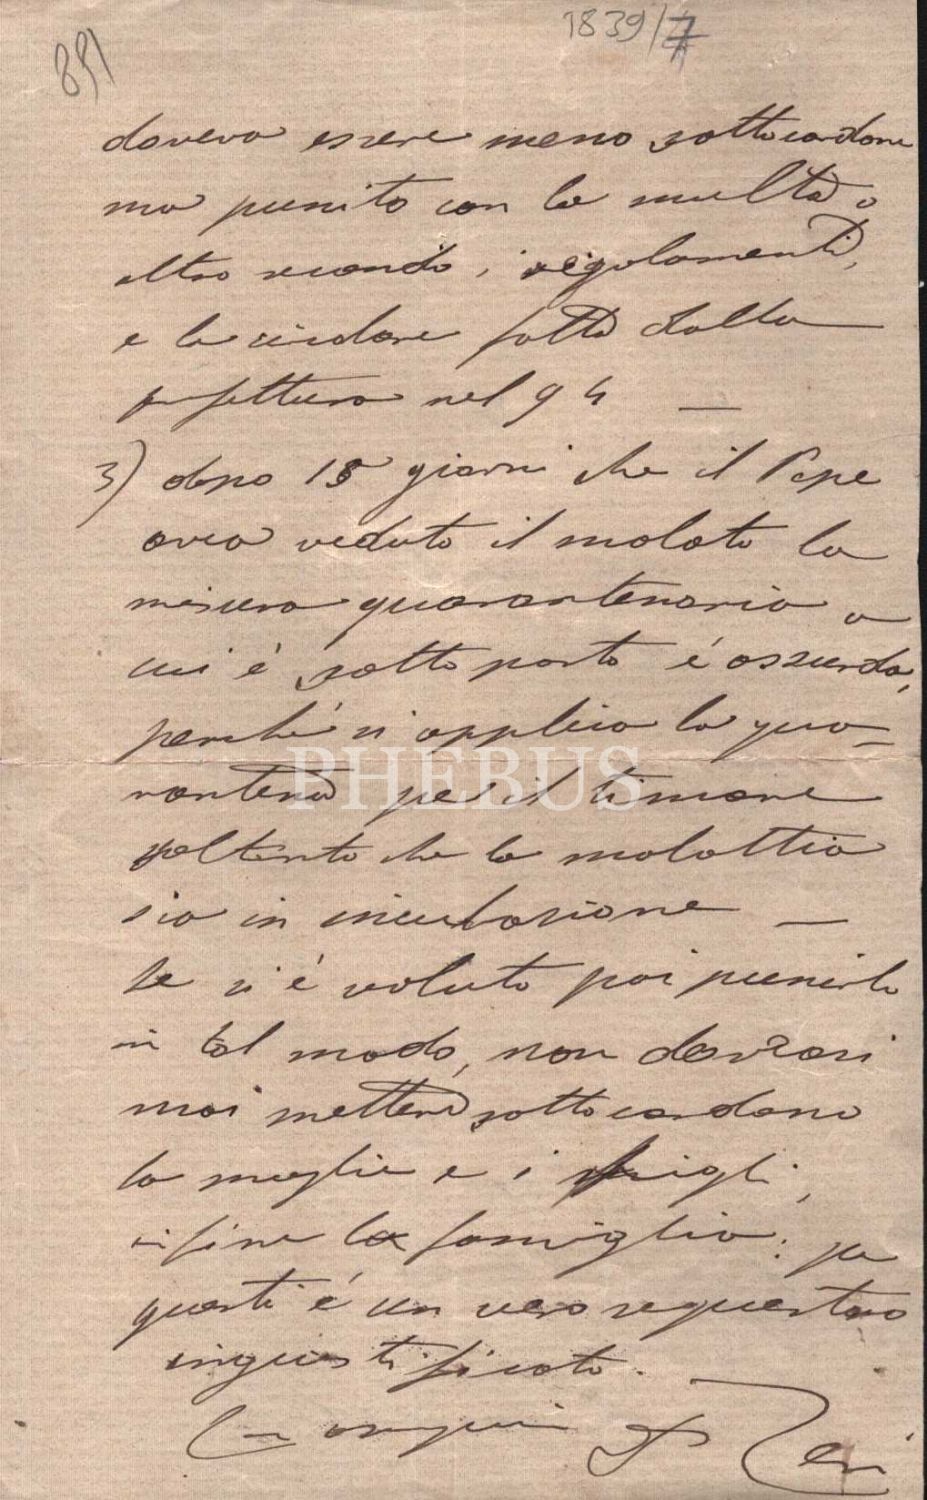 1839/7
891
doveva essere messo sotto cordone
ma punito con la multa o
altro secondo i regolamenti,
e la circolare fatta dalla
prefettura nel 94 —
3) dopo 15 giorni che il Pepe
avea veduto il malato la
misura quarantenaria a
cui è sottoposto è assurda,
perché si applica la qua=
rantena pel il timore
soltanto che la malattia
sia in incubazione —
Se si è voluto poi punirlo
in tal modo, non dovrassi
mai mettere sotto cordone
la moglie e i figli,
infine la famiglia: per
questi è un vero sequestro
ingiustificato.
PHEBUS